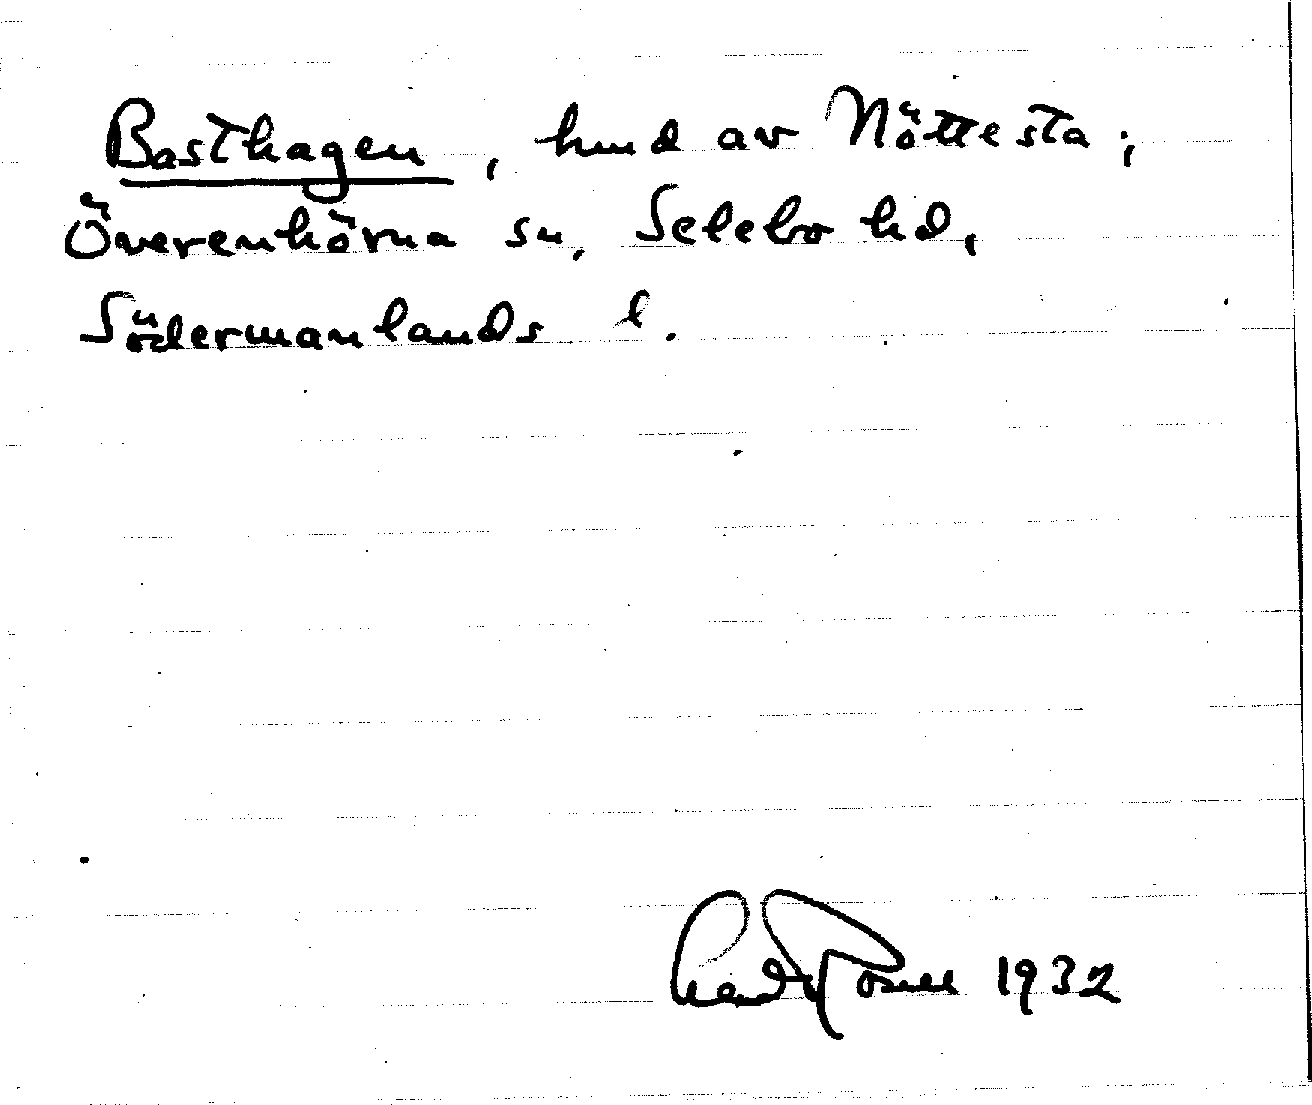 Basthagen, hmd av Nöttesta;
Överenhörna sn, Selebo hd,
Södermanlands l.
1932